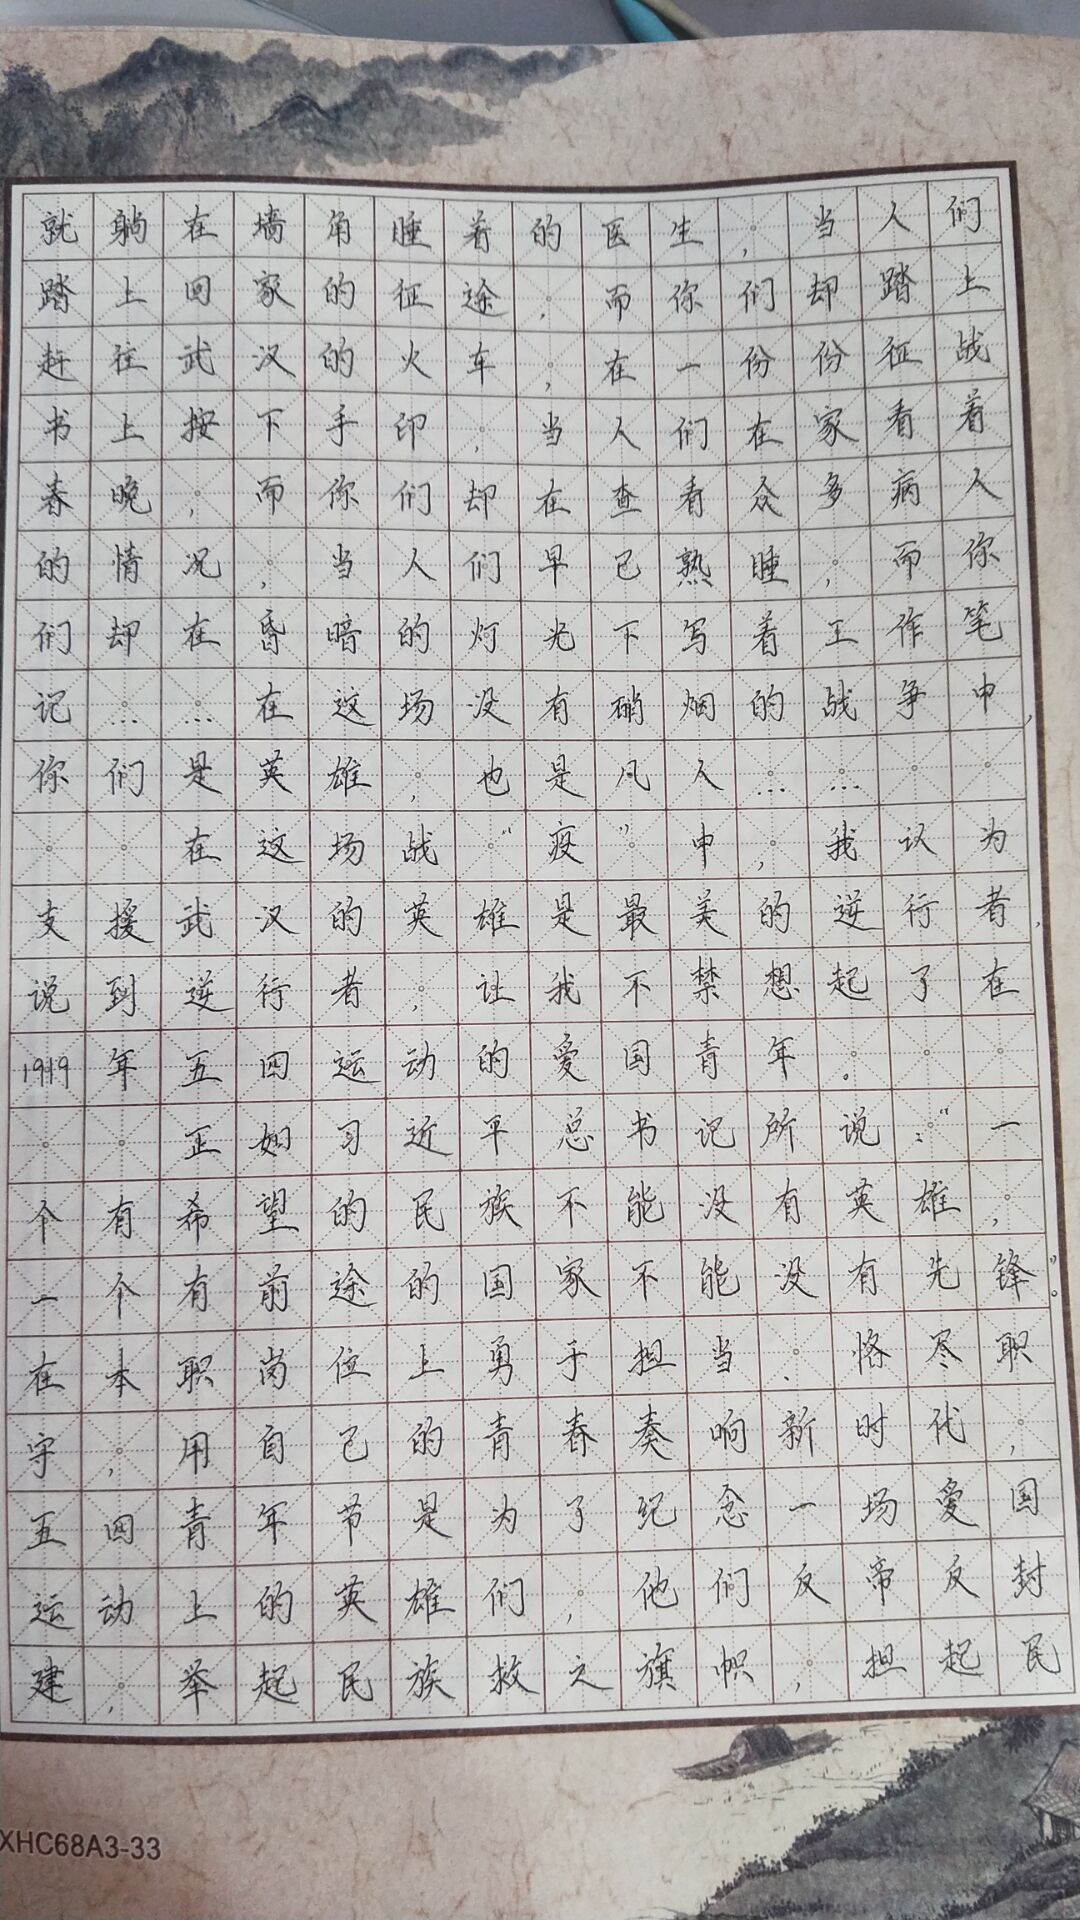 就躺在墙角睡着的医生，当人们
踏上回家的征途，而你们却踏上
赶往武汉的火车，在一份份征战
书上按下手印，当人们在家看着
春晚，而你们却在查看众多病人
的情况，当人们早已熟睡，而你
们却在昏暗的灯光下写着工作笔
记……在这场没有硝烟的战争中，
你们是英雄，也是凡人……
在这场战“疫”中，我认为
支援武汉的英雄是最美的逆行者，
说到逆行者，让我不禁想起了在
1919年五四运动的爱国青年。
正如习近平总书记所说：“一
个有希望的民族不能没有英雄，
一个有前途的国家不能没有先锋”。
在本职岗位上勇于担当、恪尽职
守，用自己的青春奏响新时代，
五四青年节是为了纪念一场爱国
运动上的英雄们，他们反帝反封
建，举起民族救之旗帜，担起民
XHC68A3-33